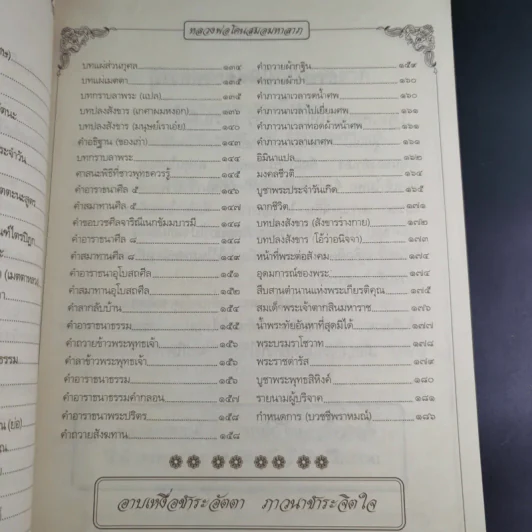 หลวงพ่อโตนสมอมหาลาภ
บทแผ่ส่วนกุศล ๑๓๔
บทแผ่เมตตา ๑๓๕
บทกราบลาพระ (แปล) ๑๓๕
บทปลงสังขาร (เกศาผมหงอก) ๑๓๖
บทปลงสังขาร (มนุษย์เราเอ๋ย) ๑๔๐
คำอธิฐาน (ของเก่า) ๑๔๓
บทกราบลาพระ ๑๔๔
ศาสนพิธีที่ชาวพุทธควรรู้ ๑๔๕
คำอาราธนาศีล ๕ ๑๔๖
คำสมาทานศีล ๕ ๑๔๗
คำขอบวชศีลจาริณีเนกขัมมบารมี ๑๔๘
คำอาราธนาศีล ๘ ๑๔๘
คำสมาทานศีล ๘ ๑๔๙
คำอาราธนาอุโบสถศีล ๑๕๑
คำสมาทานอุโบสถศีล ๑๕๒
คำลากลับบ้าน ๑๕๔
คำอาราธนาธรรม ๑๕๕
คำถวายข้าวพระพุทธเจ้า ๑๕๖
คำลาข้าวพระพุทธเจ้า ๑๕๖
คำอาราธนาธรรม ๑๕๖
คำอาราธนาธรรมคำกลอน ๑๕๗
คำอาราธนาพระปริตร ๑๕๘
คำถวายสังฆทาน ๑๕๘
คำถวายผ้ากฐิน ๑๕๙
คำถวายผ้าป่า ๑๖๐
คำภาวนาเวลารดน้ำศพ ๑๖๐
คำภาวนาเวลาไปเยี่ยมศพ ๑๖๑
คำภาวนาเวลาทอดผ้าหน้าศพ ๑๖๑
คำภาวนาเวลาเผาศพ ๑๖๑
อิมินาแปล ๑๖๒
มงคลชีวิต ๑๖๔
บูชาพระประจำวันเกิด ๑๖๕
ฉากชีวิต ๑๗๑
บทปลงสังขาร (สังขารร่างกาย) ๑๗๒
บทปลงสังขาร (โอ้ว่าอนิจจา) ๑๗๓
หน้าที่พระต่อสังคม ๑๗๔
อุดมการณ์ของพระ ๑๗๔
สืบสานตำนานแห่งพระเกียรติคุณ ๑๗๕
สมเด็จพระเจ้าตากสินมหาราช ๑๗๖
น้ำพระทัยอันหาที่สุดมิได้ ๑๗๗
พระบรมราโชวาท ๑๗๘
พระราชดำรัส ๑๗๙
บูชาพระพุทธสิหิงค์ ๑๘๐
รายนามผู้บริจาค ๑๘๑
กำหนดการ (บวชชีพราหมณ์) ๑๘๖
อาบเหงื่อชำระอัตตา ภาวนาชำระจิตใจ